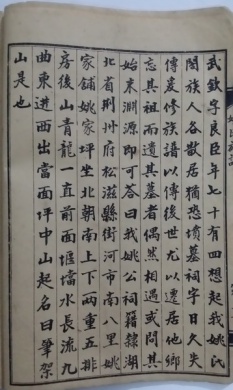 武欽字良臣年七十有四想起我姚氏
闔族人各散居猶恐墳墓祠字日久失
傳爰修族譜以傳後世尤以遷居他鄉
忘其祖而遺其墓者偶然相遇或問其
始末淵源即可答曰我姚公祠籍隸湖
北省荆州府松滋縣街河市南八里姚
家鋪姚家坪坐北朝南上下兩重五排
房後山青龍一直前面堰壋水長流九
曲東遊西出當面坪中山起名曰筆架
山是也